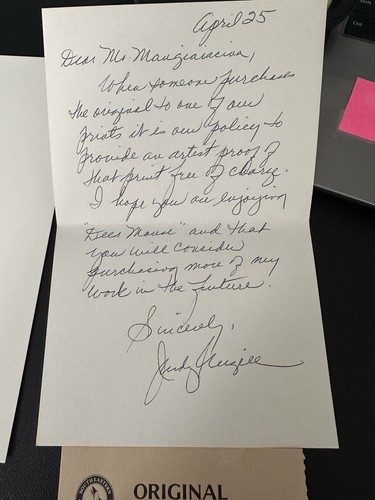 April 25
Dear Ms Mangiaracina,
When someone purchases
the original to one of our
prints it is our policy to
provide an artist proof of
that print free of charge.
I hope you are enjoying
"Deer Mouse" and that
you will consider
purchasing more of my
work in the future.
Sincerely,
Judy
SOUTHEASTERN
ORIGINAL
Ctrl